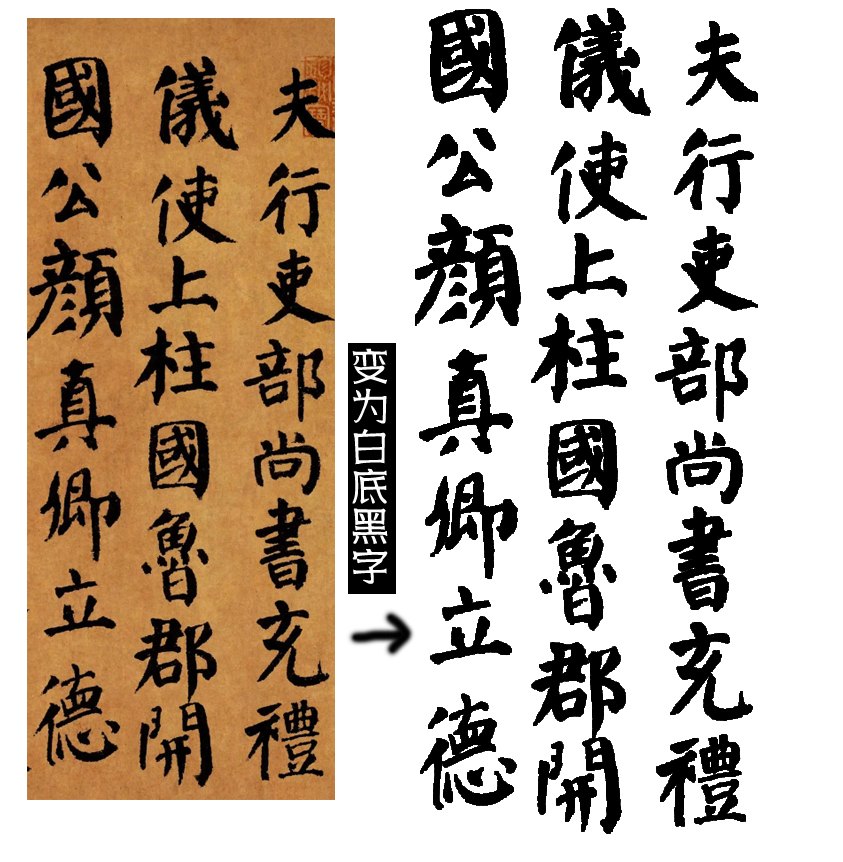 夫行吏部尚書充禮
儀使上柱國魯郡開
國公顔真卿立德
变为白底黑字
夫行吏部尚書充禮
儀使上柱國魯郡開
國公顔真卿立德